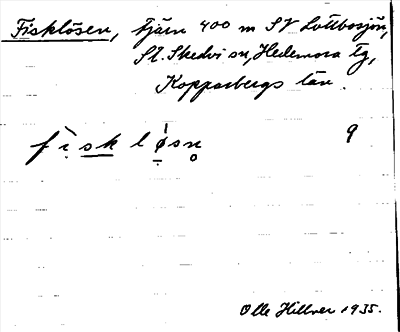 Fisklösen, tjärn 400 m SV Lottbosjön,
St. Skedvi sn, Hedemora tg,
Kopparbergs län.
fìsklǿsn̥ 9
Olle Hillver 1935.